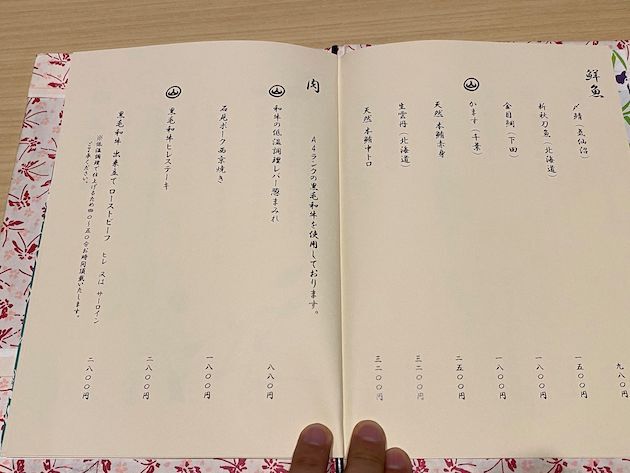 鮮魚
〆鯖(気仙沼) 九八〇円
新秋刀魚(北海道) 一五〇〇円
金目鯛(下田) 一八〇〇円
かます(千葉) 一八〇〇円
天然 本鮪赤身 二五〇〇円
生雲丹(北海道) 三二〇〇円
天然 本鮪中トロ 三二〇〇円
肉
A4ランクの黒毛和牛を使用しております。
和牛の低温調理レバー葱まみれ 八八〇円
石見ポーク西京焼き 一八〇〇円
黒毛和牛ヒレステーキ 二八〇〇円
黒毛和牛 出来立てローストビーフ ヒレ 又は サーロイン 二八〇〇円
※低温調理で仕上げるため四〇〜五〇分お時間頂戴いたします。
ご了承ください。